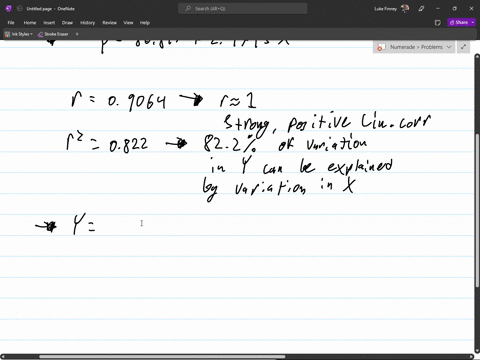 Untitled page - OneNote
Search (Alt+Q)
Luke Finney
File Home Insert Draw History Review View Help
Share
Ink Styles Stroke Eraser
Numerade > Problems
r = 0.9064 → r ≈ 1
Strong, positive Lin. corr
r² = 0.822 → 82.2% of variation
in Y can be explained
by variation in X
→ Y =